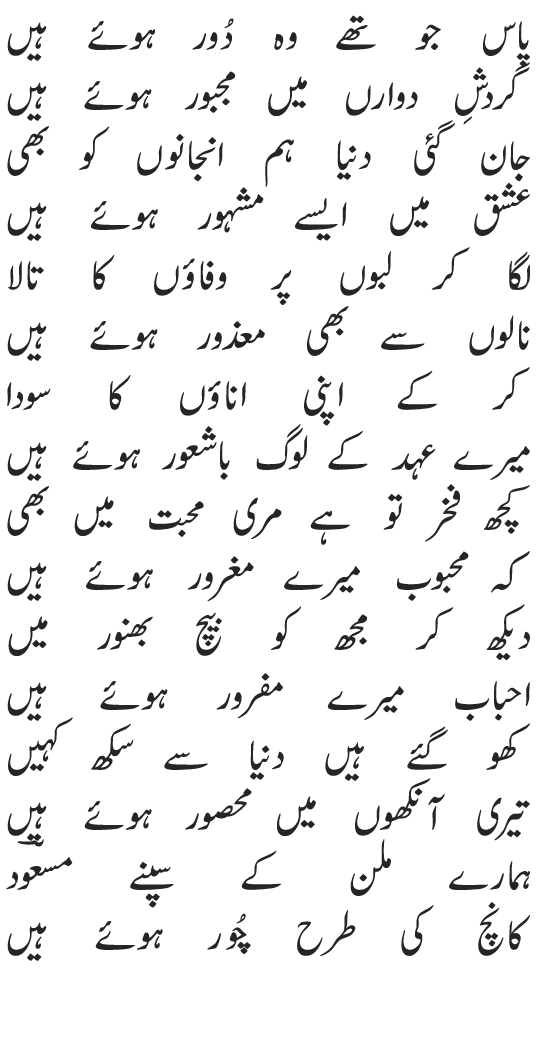 پاس جو تھے وہ دُور ہوئے ہیں
گردشِ دوارں میں مجبور ہوئے ہیں
جان گئی دنیا ہم انجانوں کو بھی
عشق میں ایسے مشہور ہوئے ہیں
لگا کر لبوں پر وفاؤں کا تالا
نالوں سے بھی معذور ہوئے ہیں
کر کے اپنی اناؤں کا سودا
میرے عہد کے لوگ باشعور ہوئے ہیں
کچھ فخر تو ہے مری محبت میں بھی
کہ محبوب میرے مغرور ہوئے ہیں
دیکھ کر مجھ کو بیچ بھنور میں
احباب میرے مفرور ہوئے ہیں
کھو گئے ہیں دنیا سے سکھ کہیں
تیری آنکھوں میں محصور ہوئے ہیں
ہمارے ملن کے سپنے مسعودؔ
کانچ کی طرح چُور ہوئے ہیں